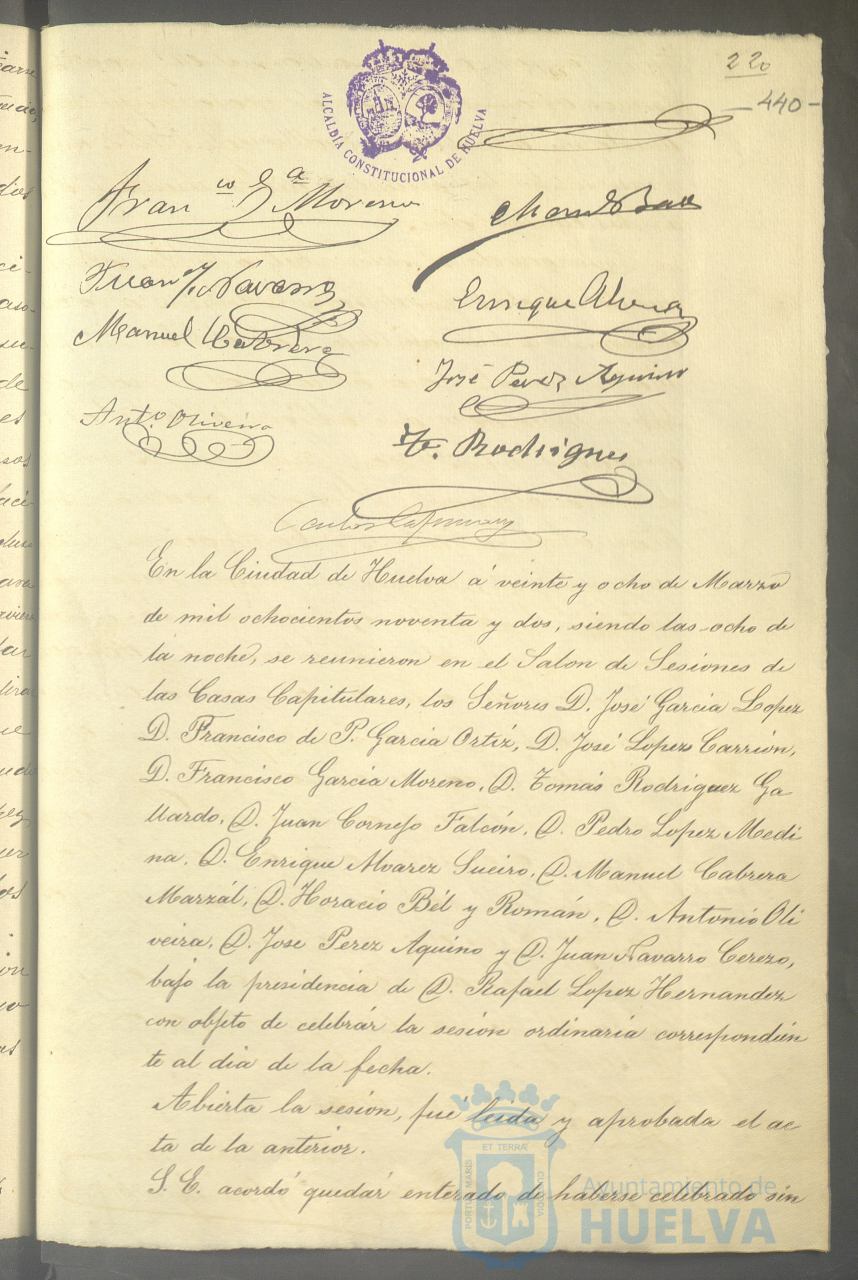 220
-440-
ALCALDÍA CONSTITUCIONAL DE HUELVA
Franco Ga Moreno
Juan Navarro
Manuel Cabrera
Enrique Alvarez
José Perez Aquino
Anto Oliveira
Rodriguez
En la Ciudad de Huelva á veinte y ocho de Marzo
de mil ochocientos noventa y dos, siendo las ocho de
la noche, se reunieron en el Salon de Sesiones de
las Casas Capitulares, los Señores D. José García Lopez
D. Francisco de P. Garcia Ortíz, D. José Lopez Carrión,
D. Francisco Garcia Moreno, D. Tomás Rodriguez Ga
llardo, D. Juan Cornejo Falcón, D. Pedro Lopez Medi
na, D. Enrique Alvarez Sueiro, D. Manuel Cabrera
Marzál, D. Horacio Bél y Román, D. Antonio Oli
veira, D. Jose Perez Aquino y D. Juan Navarro Cerezo,
bajo la presidencia de D. Rafael Lopez Hernandez
con objeto de celebrár la sesion ordinaria correspondien
te al dia de la fecha.
Abierta la sesion, fué leida y aprobada el ac
ta de la anterior.
S. E. acordó quedár enterado de haberse celebrado sin
PORTUS MARIS ET TERRA CUSTODIA
Ayuntamiento de
HUELVA